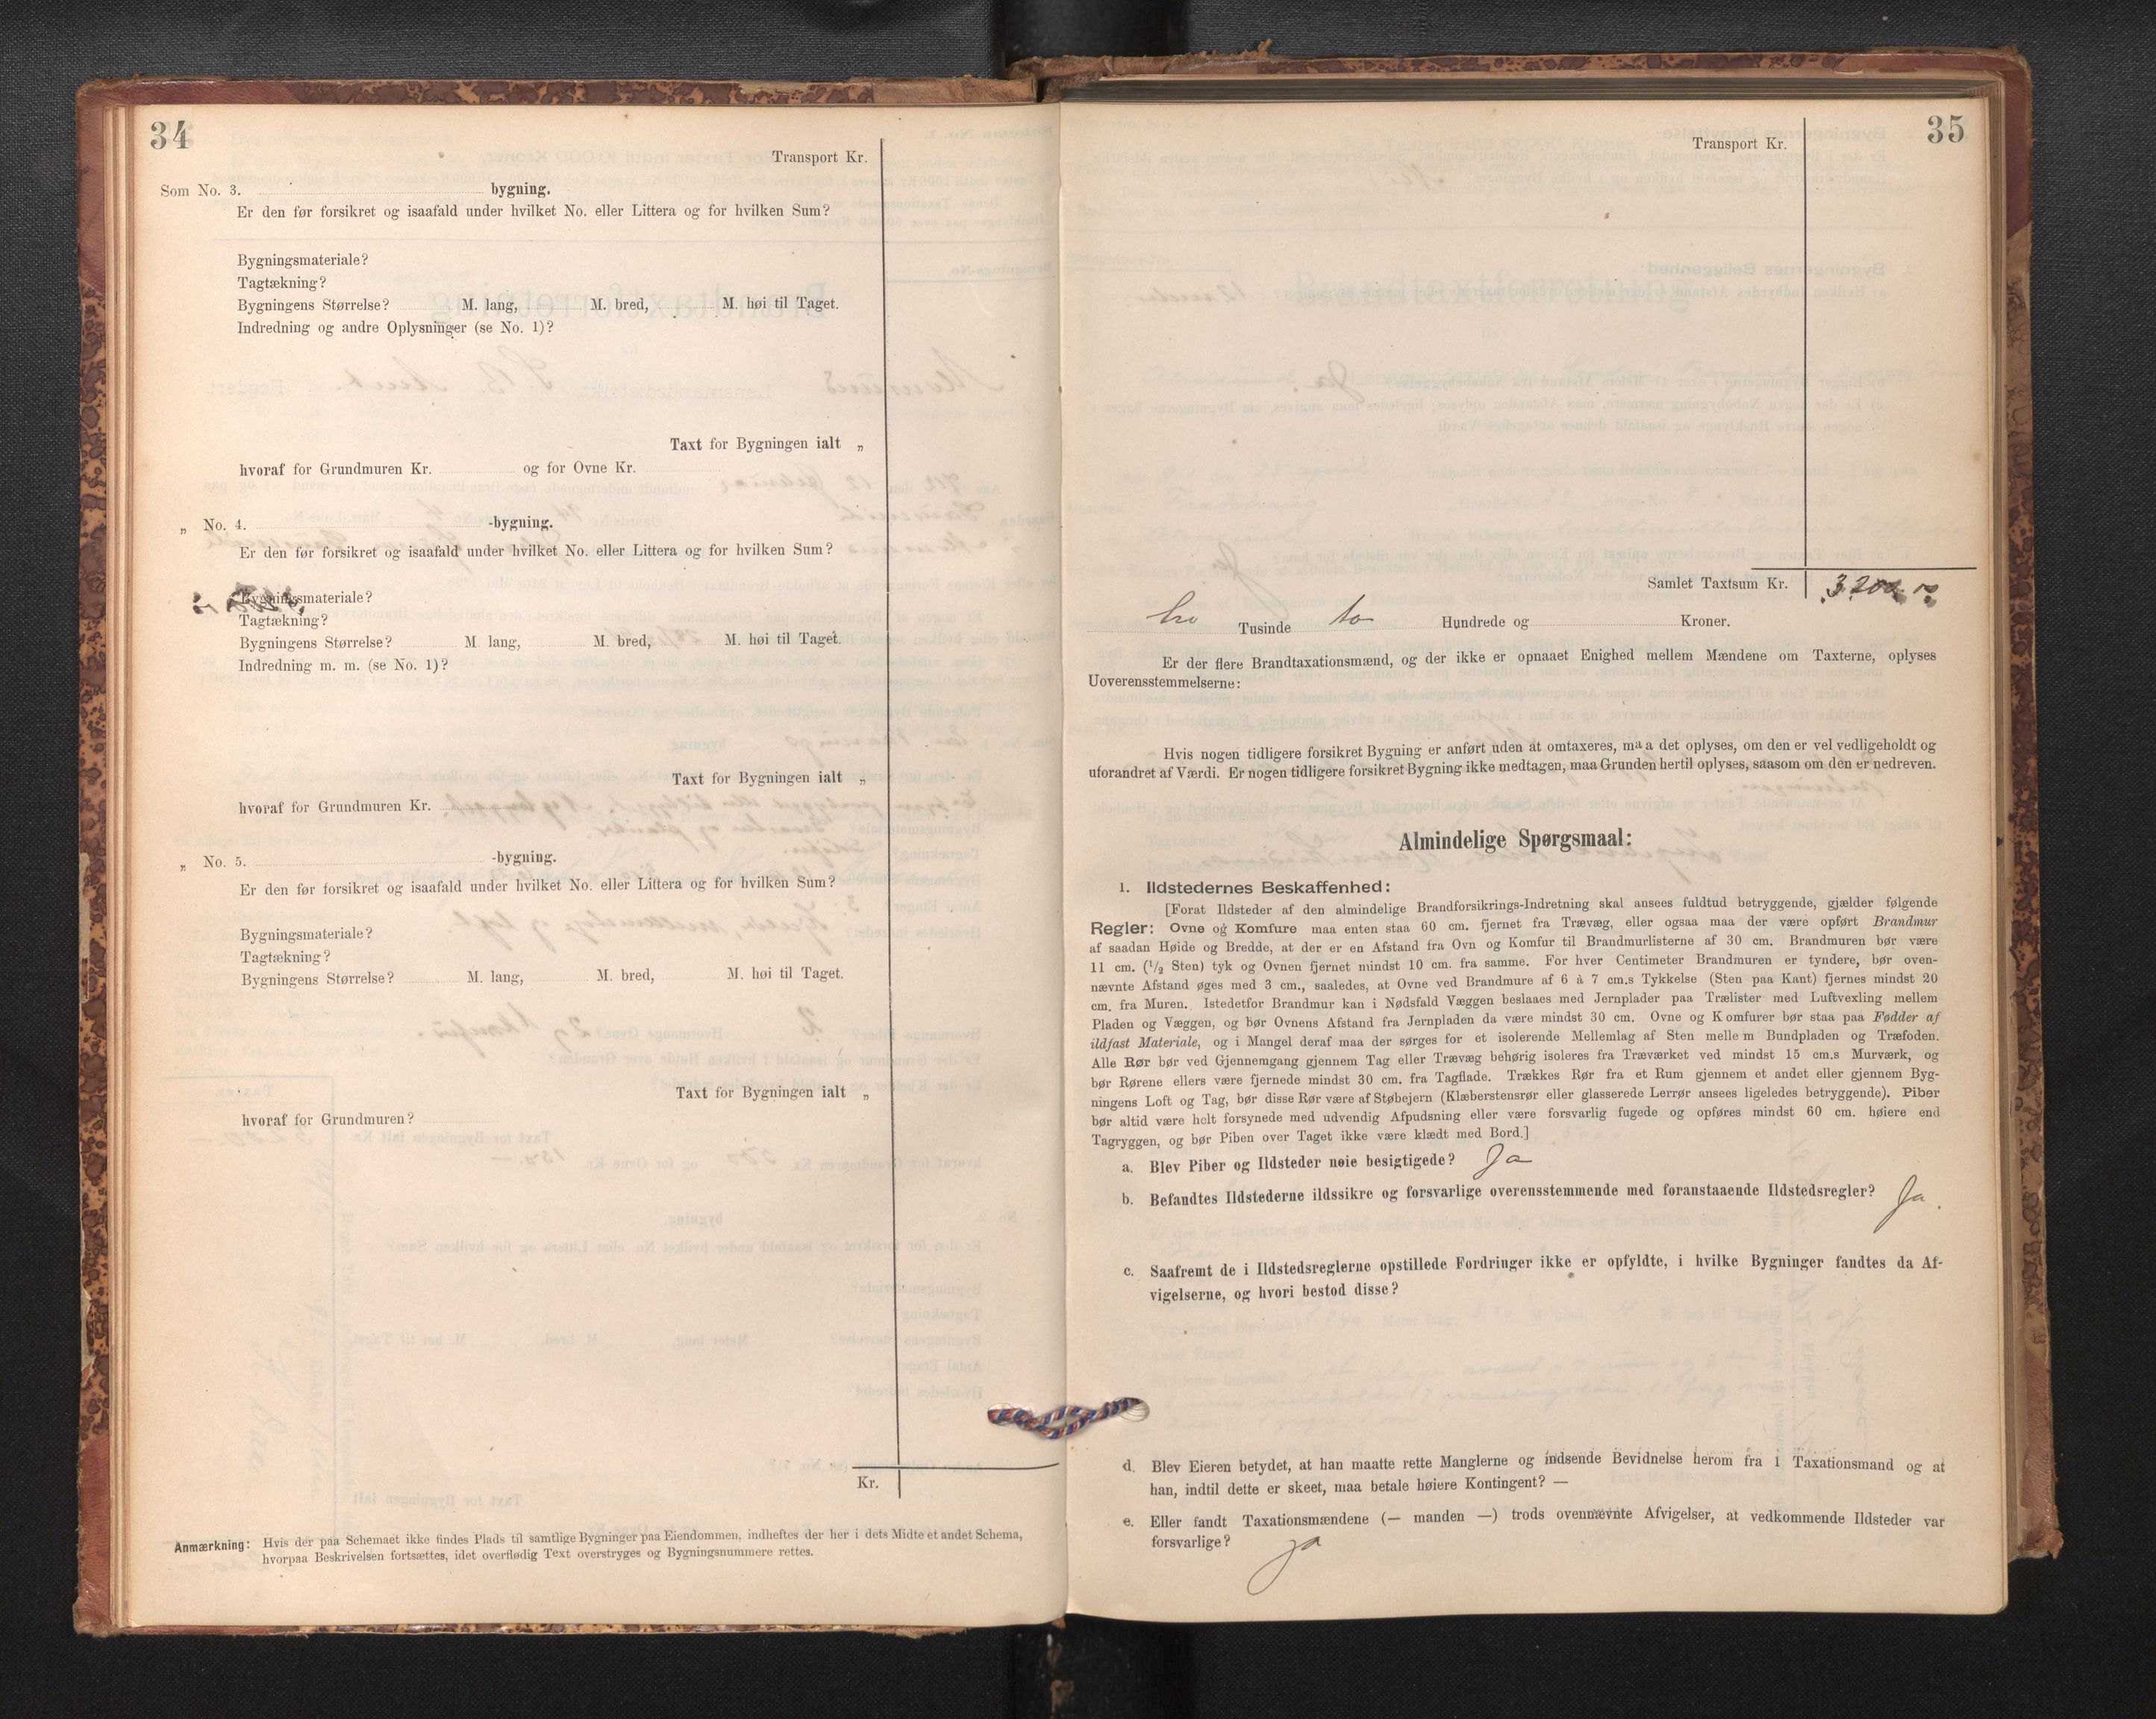 34
Transport Kr.
Som No. 3. bygning.
Er den før forsikret og isaafald under hvilket No. eller Littera og for hvilken Sum?
Bygningsmateriale?
Tagtækning?
Bygningens Størrelse? M. lang, M. bred, M. høi til Taget.
Indredning og andre Oplysninger (se No. 1)?
Taxt for Bygningen ialt „
hvoraf for Grundmuren Kr. og for Ovne Kr.
„ No. 4. -bygning.
Er den før forsikret og isaafald under hvilket No. eller Littera og for hvilken Sum?
Bygningsmateriale?
Tagtækning?
Bygningens Størrelse? M. lang, M. bred, M. høi til Taget.
Indredning m. m. (se No. 1)?
Taxt for Bygningen ialt „
hvoraf for Grundmuren Kr.
„ No. 5. -bygning.
Er den før forsikret og isaafald under hvilket No. eller Littera og for hvilken Sum?
Bygningsmateriale?
Tagtækning?
Bygningens Størrelse? M. lang, M. bred, M. høi til Taget.
Taxt for Bygningen ialt „
hvoraf for Grundmuren?
Kr.
Anmærkning: Hvis der paa Schemaet ikke findes Plads til samtlige Bygninger paa Eiendommen, indheftes der her i dets Midte et andet Schema,
hvorpaa Beskrivelsen fortsættes, idet overflødig Text overstryges og Bygningsnummere rettes.
35
Transport Kr.
Samlet Taxtsum Kr. 3200
tre Tusinde to Hundrede og Kroner.
Er der flere Brandtaxationsmænd, og der ikke er opnaaet Enighed mellem Mændene om Taxterne, oplyses
Uoverensstemmelserne:
Hvis nogen tidligere forsikret Bygning er anført uden at omtaxeres, maa det oplyses, om den er vel vedligeholdt og
uforandret af Værdi. Er nogen tidligere forsikret Bygning ikke medtagen, maa Grunden hertil oplyses, saasom om den er nedreven.
Almindelige Spørgsmaal:
1. Ildstedernes Beskaffenhed:
[Forat Ildsteder af den almindelige Brandforsikrings-Indretning skal ansees fuldtud betryggende, gjælder følgende
Regler: Ovne og Komfure maa enten staa 60 cm. fjernet fra Trævæg, eller ogsaa maa der være opført Brandmur
af saadan Høide og Bredde, at der er en Afstand fra Ovn og Komfur til Brandmurlisterne af 30 cm. Brandmuren bør være
11 cm. (1/2 Sten) tyk og Ovnen fjernet mindst 10 cm. fra samme. For hver Centimeter Brandmuren er tyndere, bør oven-
nævnte Afstand øges med 3 cm., saaledes, at Ovne ved Brandmure af 6 à 7 cm.s Tykkelse (Sten paa Kant) fjernes mindst 20
cm. fra Muren. Istedetfor Brandmur kan i Nødsfald Væggen beslaaes med Jernplader paa Trælister med Luftvexling mellem
Pladen og Væggen, og bør Ovnens Afstand fra Jernpladen da være mindst 30 cm. Ovne og Komfurer bør staa paa Fødder af
ildfast Materiale, og i Mangel deraf maa der sørges for et isolerende Mellemlag af Sten mellem Bundpladen og Træfoden.
Alle Rør bør ved Gjennemgang gjennem Tag eller Trævæg behørig isoleres fra Træværket ved mindst 15 cm.s Murværk, og
bør Rørene ellers være fjernede mindst 30 cm. fra Tagflade. Trækkes Rør fra et Rum gjennem et andet eller gjennem Byg-
ningens Loft og Tag, bør disse Rør være af Støbejern (Klæberstensrør eller glasserede Lerrør ansees ligeledes betryggende). Piber
bør altid være helt forsynede med udvendig Afpudsning eller være forsvarlig fugede og opføres mindst 60 cm. høiere end
Tagryggen, og bør Piben over Taget ikke være klædt med Bord.]
a. Blev Piber og Ildsteder nøie besigtigede? Ja
b. Befandtes Ildstederne ildssikre og forsvarlige overensstemmende med foranstaaende Ildstedsregler? Ja.
c. Saafremt de i Ildstedsreglerne opstillede Fordringer ikke er opfyldte, i hvilke Bygninger fandtes da Af-
vigelserne, og hvori bestod disse?
d. Blev Eieren betydet, at han maatte rette Manglerne og indsende Bevidnelse herom fra 1 Taxationsmand og at
han, indtil dette er skeet, maa betale høiere Kontingent? —
e. Eller fandt Taxationsmændene (— manden —) trods ovennævnte Afvigelser, at vedkommende Ildsteder var
forsvarlige? Ja